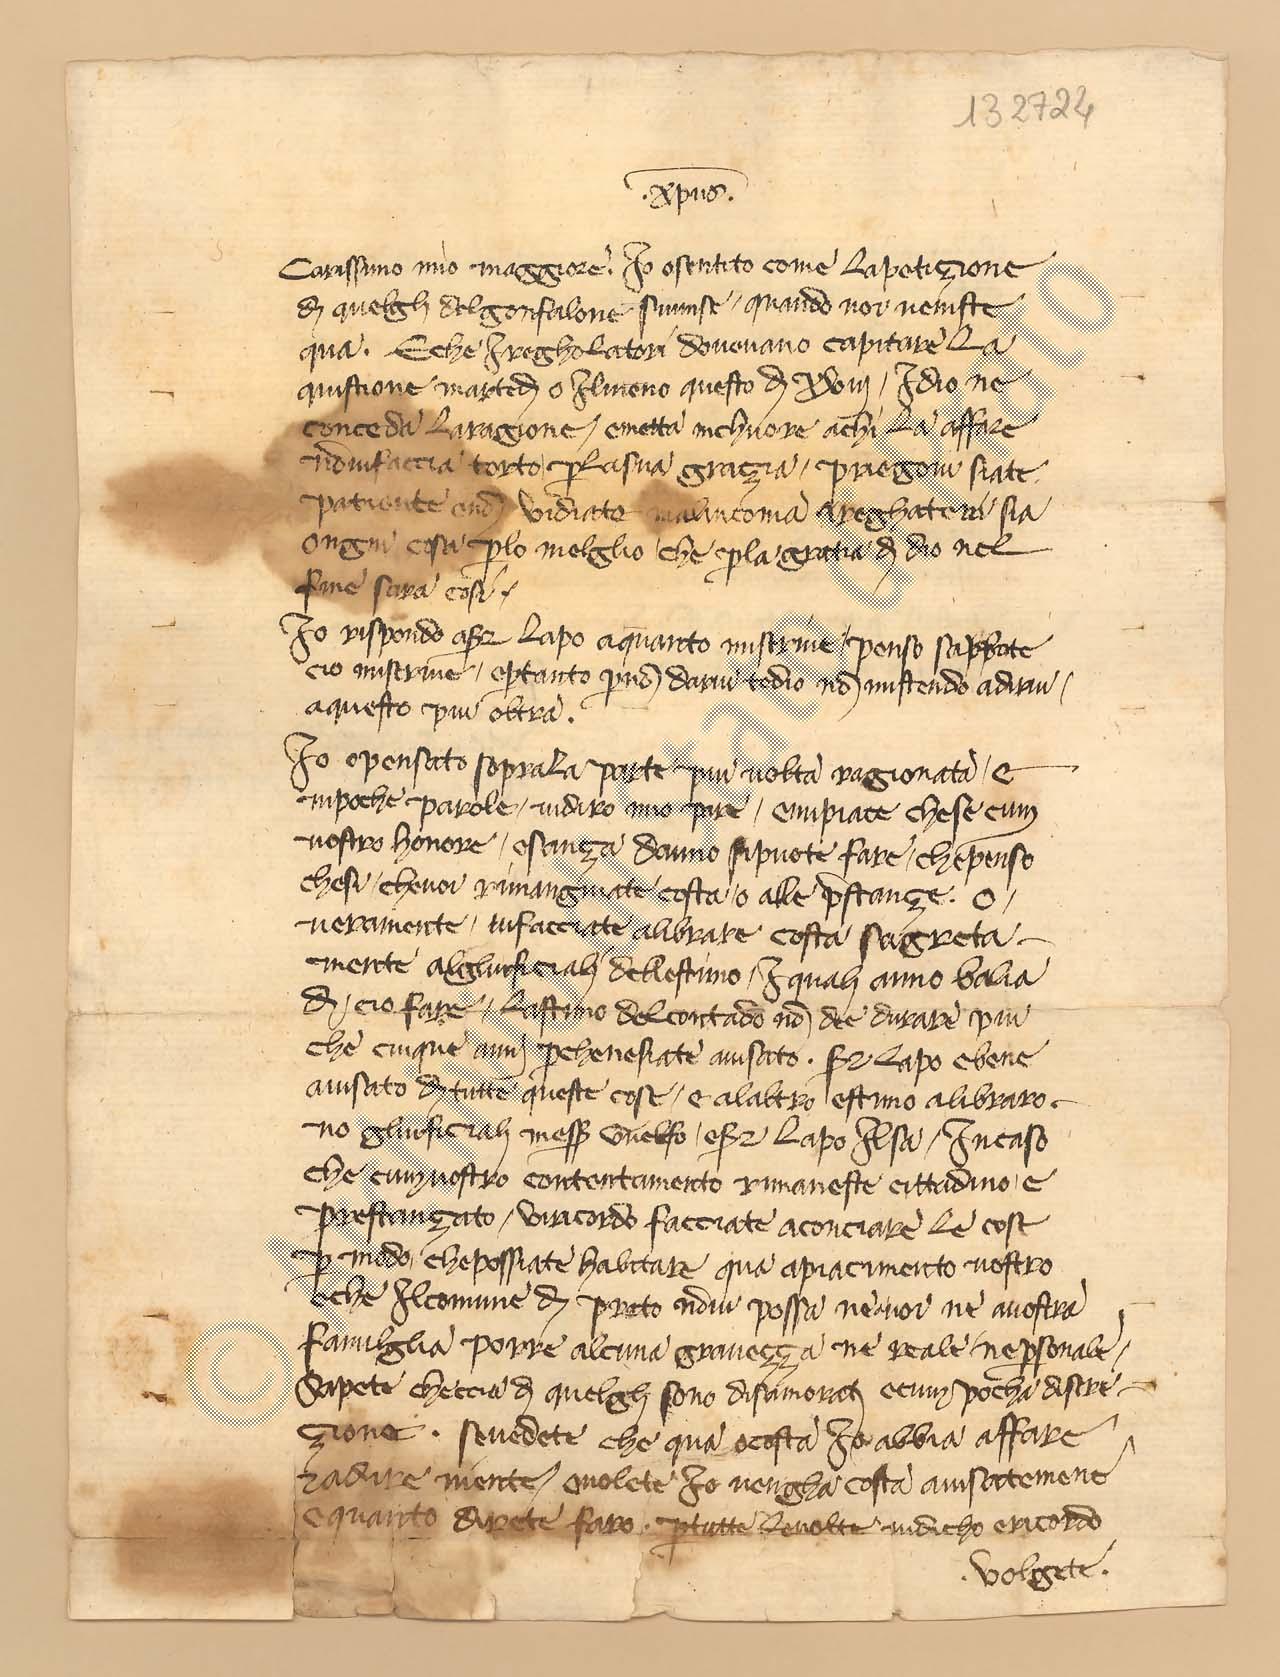 132724
.xpus.
Carissimo mio maggiore. Io o sentito come la petizione
di quelgli del gonfalone si vinse / quando voi veniste
qua. E che i regholatori dovevano capitare la
quistione martedi o il meno questo di XVIIII / Idio ne
conceda la ragione / e metta in chuore a chi l a affare
non vi faccia torto per la sua grazia / priegovi siate
patiente e non vi diate malanconia a reghatevi sia
ongni cosa per lo melglio che per la gratia di dio nel
fine sara cosi.
Io rispondo a ser Lapo a quanto mi scrive / penso sappiate
cio mi scrive / e pertanto per non darvi tedio non mi stendo a dirvi /
a questo piu oltra.
Io o pensato sopra la parte piu volta ragionata / e
in poche parole / vi diro mio parere / e mi piace che se cum
vostro honore / e sanza danno si puote fare / che penso
che si / che voi rimangniate costa / o alle prestanze. O /
veramente / vi facciate alibrare costa sagreta-
mente algluficiali dell estimo / I quali anno balia
di / cio fare / l astimo del contado non dee durare piu
che cinque anni perche ne siate avisato. ser Lapo e bene
avisato di tutte queste cose / e al altro estimo alibraro-
no gluficiali messer Guelfo / e ser Lapo il sa / In caso
che cum vostro contentamento rimaneste cittadino e
prestanzato / vi ricordo facciate aconciare le cose
per modo / che possiate habitare qua a piacimento vostro
e che il comune di prato non vi possa ne a voi ne a vostra
famiglia porre alcuna gravezza ne reale / ne personale /
Sapete che ccia di quelgli sono disamorati e cum pocha discre-
zione. se vedete che qua o costa Io abbia affare
radire niente / o volete Io vengha costa avisatemene
e quanto direte faro. per tutte le volte vi dicho e ricordo
.volgete.
© Archivio di Stato di Prato